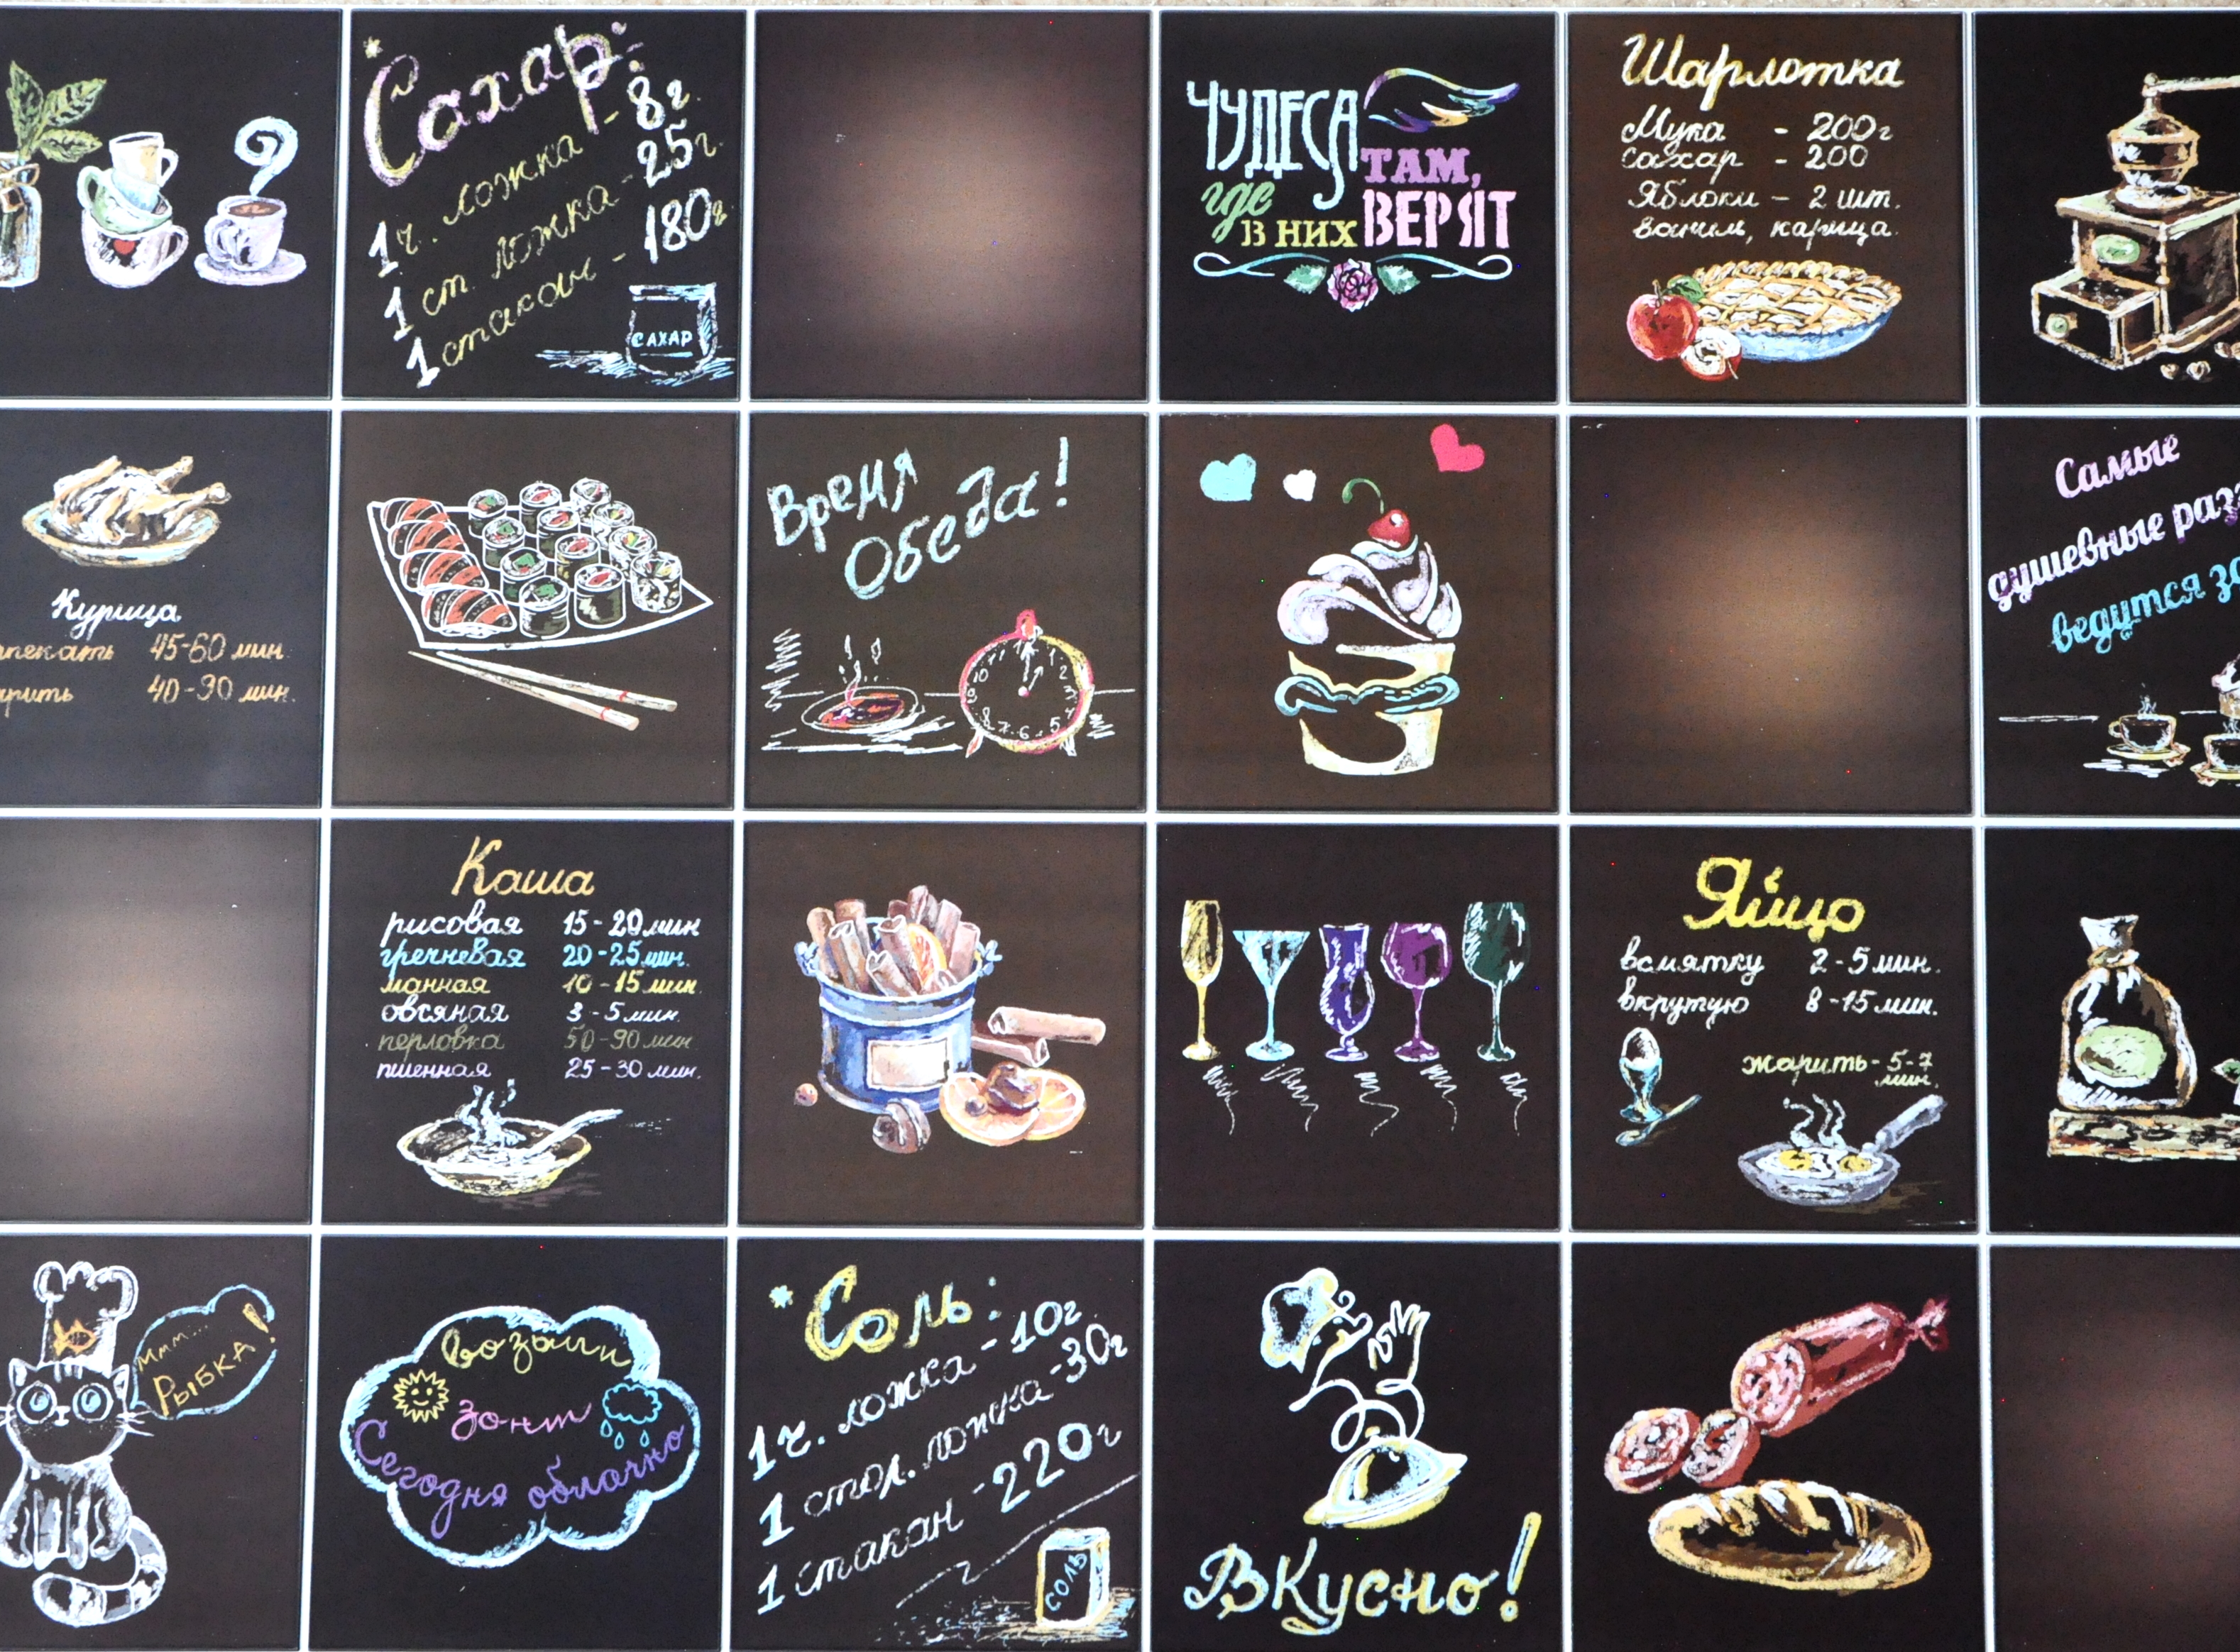 Сахар:
1 ч. ложка - 8г.
1 ст. ложка - 25г.
1 стакан - 180г.
САХАР
ЧУДЕСА
ТАМ,
где
В НИХ ВЕРЯТ
Шарлотка
Мука - 200г
сахар - 200
Яблоки - 2 шт.
ваниль, карица
Курица
45-60 мин.
40-90 мин.
Время
Обеда!
Самые
душевные
ведутся
Каша
рисовая 15-20 мин
гречневая 20-25 мин.
манная 10-15 мин.
овсяная 3-5 мин.
перловка 50-90 мин
пшенная 25-30 мин.
Яйцо
всмятку 2-5 мин.
вкрутую 8-15 мин.
жарить - 5-7
мин.
Ммм...
РЫБКА!
возьми
зонт
Сегодня облачно
*Соль:
1 ч. ложка - 10г
1 стол. ложка - 30г
1 стакан - 220г
СОЛЬ
Вкусно!